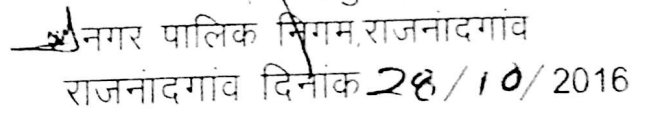 नगर पालिक निगम, राजनांदगांव
राजनांदगांव दिनांक 28/10/2016